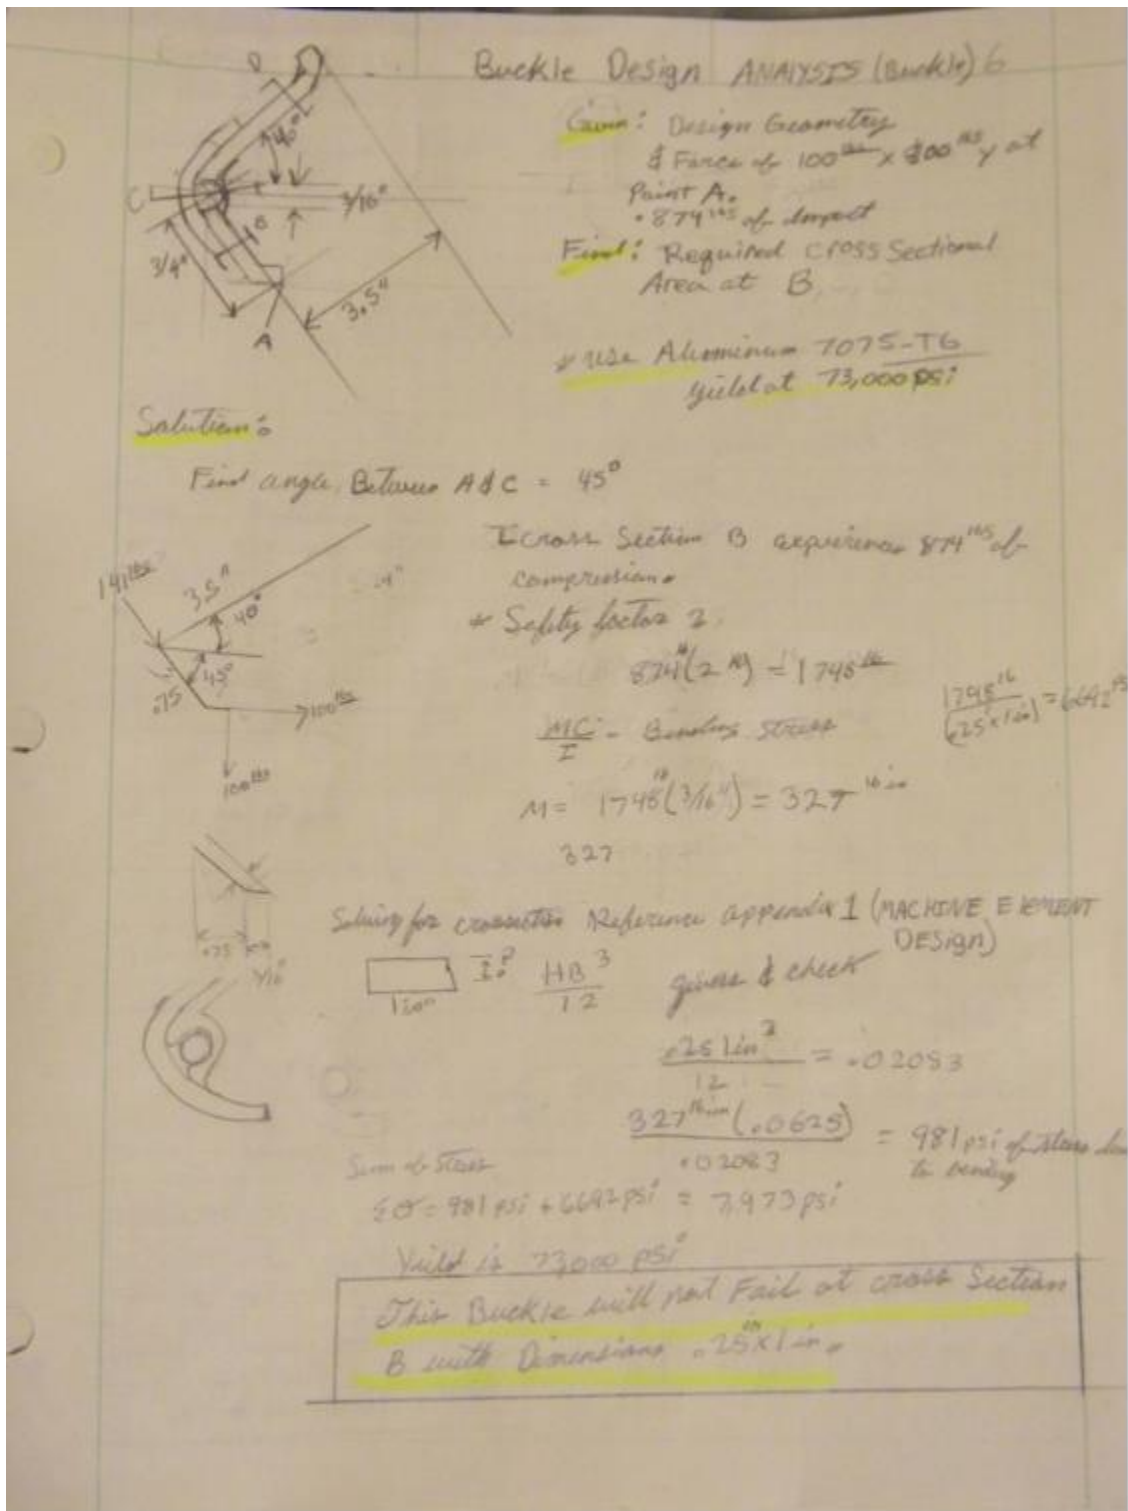 Buckle Design ANALYSIS (Buckle) 6
Given: Design Geometry
& Force of 100 lbs x & 100 lbs y at
Point A.
• 874 lbs of Impact
Find: Required Cross Sectional
Area at B.
* Use Aluminum 7075-T6
yield at 73,000 psi
D
40°
C
3/16"
B
3/4"
3.5"
A
Solution:
Find angle Between A & C = 45°
cross Section B experiences 874 lbs of
compression.
* Safety factor 2.
874 lb (2) = 1748 lb
MC/I - Bending Stress
M = 1748 lb (3/16") = 327 lb in
327
141 lbs
3.5"
40°
45°
.75
100 lbs
100 lbs
Solving for crossection Reference appendix 1 (MACHINE ELEMENT
DESIGN)
I? HB^3/12
guess & check
1 in
.25 1in^3/12 = .02083
327 lb in (.0625)/.02083 = 981 psi of stress
to bending
Sum of Stress
Σσ = 981 psi + 6692 psi = 7,973 psi
Yield is 73,000 psi
This Buckle will not Fail at cross Section
B with Dimensions .25 x 1 in.